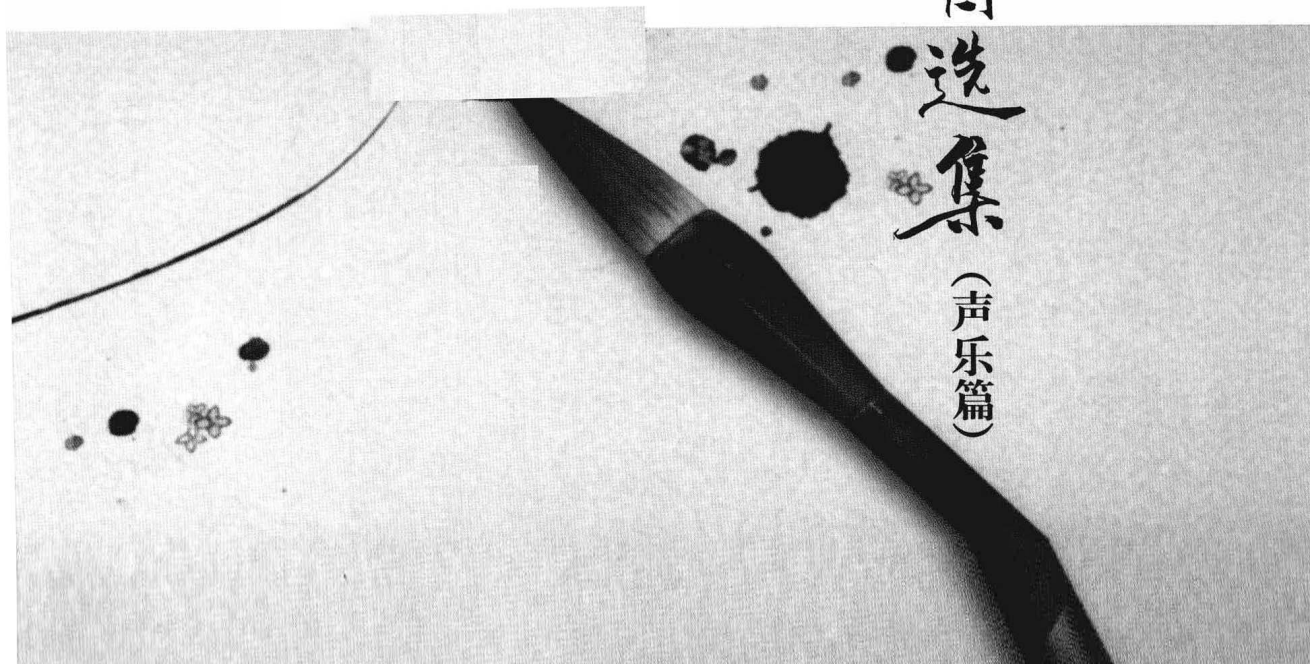 选集
(声乐篇)